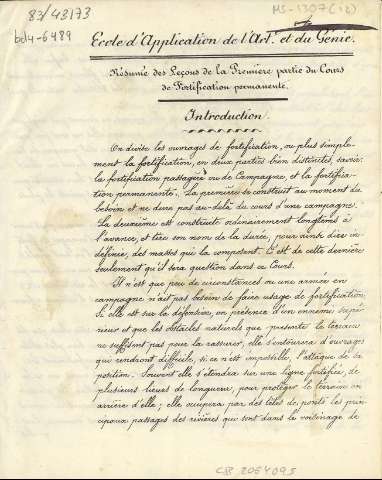 83/43173
MS-1307 (12)
bel4-6489
Ecole d'Application de l'Art.ie et du Génie.
Résumés des Leçons de la Première partie du Cours
de Fortification permanente.
Introduction.
On divise les ouvrages de fortification, ou plus simple-
ment la fortification, en deux parties bien distinctes, savoir:
la fortification passagère ou de Campagne, et la fortifica-
tion permanente. La première se construit au moment du
besoin et ne dure pas au-delà du cours d'une campagne.
La deuxième est construite ordinairement longtems à
l'avance, et tire son nom de la durée, pour ainsi dire in-
définie, des masses qui la composent. C'est de cette dernière
seulement qu'il sera question dans ce Cours.
Il n'est que peu de circonstances ou une armée en
campagne n'ait pas besoin de faire usage de fortification.
Si elle est sur la défensive, en présence d'un ennemi supé-
rieur et que les obstacles naturels que présente le terrain
ne suffisent pas pour la rassurer, elle s'entourera d'ouvrages
qui rendront difficile, si ce n'est impossible, l'attaque de la
position. Souvent elle s'étendra sur une ligne fortifiée, de
plusieurs lieues de longueur, pour protéger le terrain en
arrière d'elle; elle occupera par des têtes de ponts les prin-
cipaux passages des rivières qui sont dans le voisinage de
CB 2064095